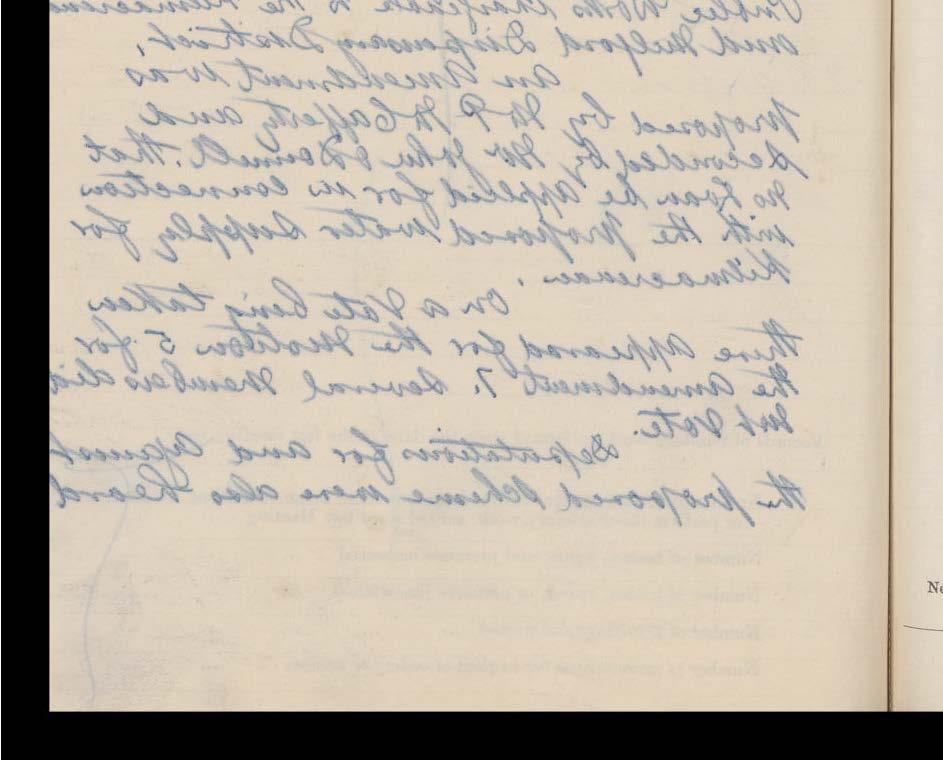 Public Works chargeable to the Kilmacrenan
and Milford Dispensary District,
An Amendment was
proposed by Mr P McCafferty and
seconded by Mr John O'Donnell. That
no Loan be applied for in connection
with the proposed water supply for
Kilmacrenan.
On a Vote being taken
there appeared for the Motion 5 for
the Amendment 7. Several Members did
not Vote.
Deputations for and against
the proposed scheme were also heard
Number of
Number of
Number of
Number
Ne